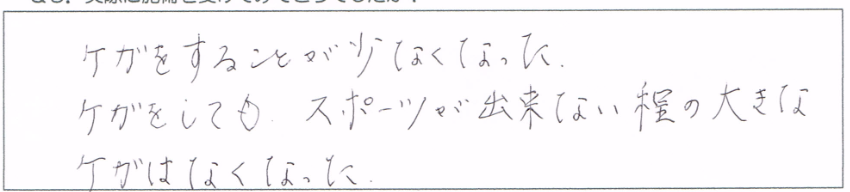 ケガをすることが少なくなった.
ケガをしても.スポーツが出来ない程の大きな
ケガはなくなった.